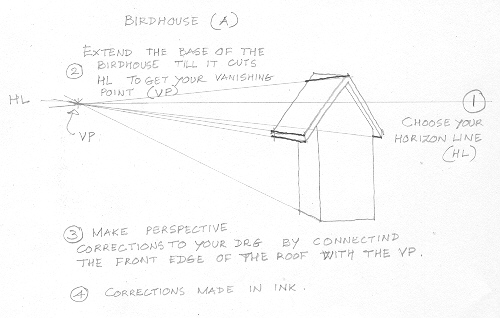 BIRDHOUSE (A)
② EXTEND THE BASE OF THE
BIRDHOUSE TILL IT CUTS
HL TO GET YOUR VANISHING
POINT (VP)
HL
VP
① CHOOSE YOUR
HORIZON LINE
(HL)
③ MAKE PERSPECTIVE
CORRECTIONS TO YOUR DRG BY CONNECTIND
THE FRONT EDGE OF THE ROOF WITH THE VP.
④ CORRECTIONS MADE IN INK.